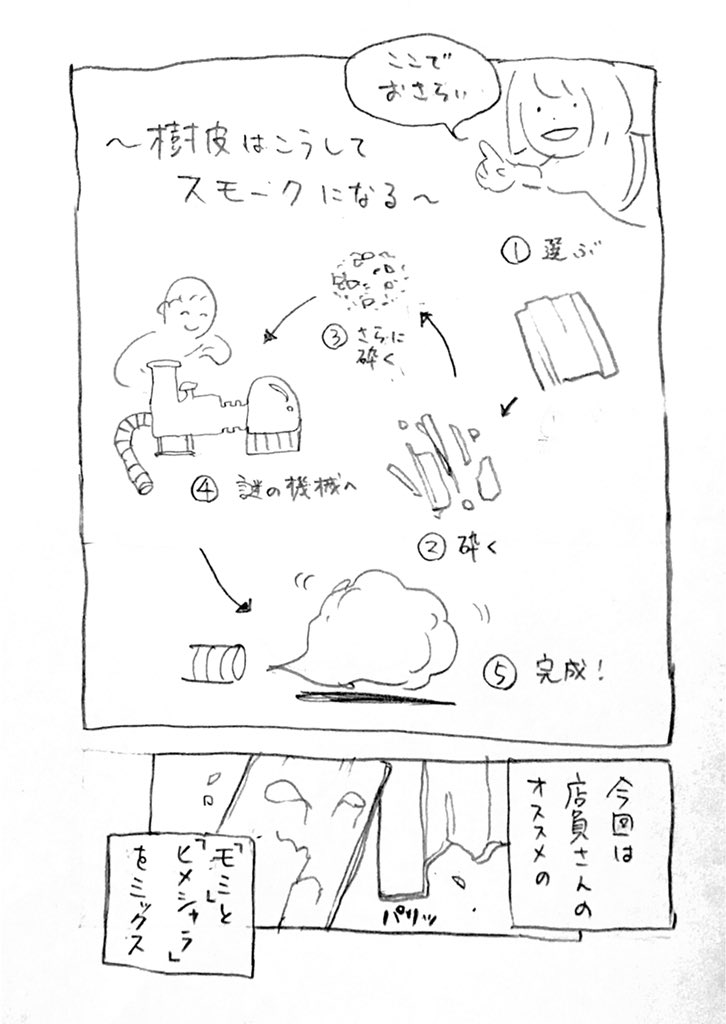 ここで
おさらい
～樹皮はこうして
スモークになる～
① 選ぶ
② 砕く
③ さらに
砕く
④ 謎の機械へ
⑤ 完成！
今回は
店員さんの
オススメの
パリッ
「モミ」と
「ヒメシャラ」
をミックス